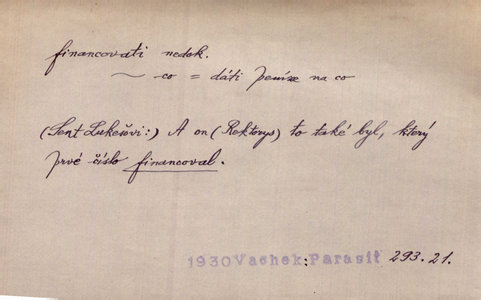 financovati nedok.
~ co = dáti peníze na co
(Šent Lukešovi:) A on (Rektorys) to také byl, který
prvé číslo financoval.
1930 Vachek: Parasit 293.21.